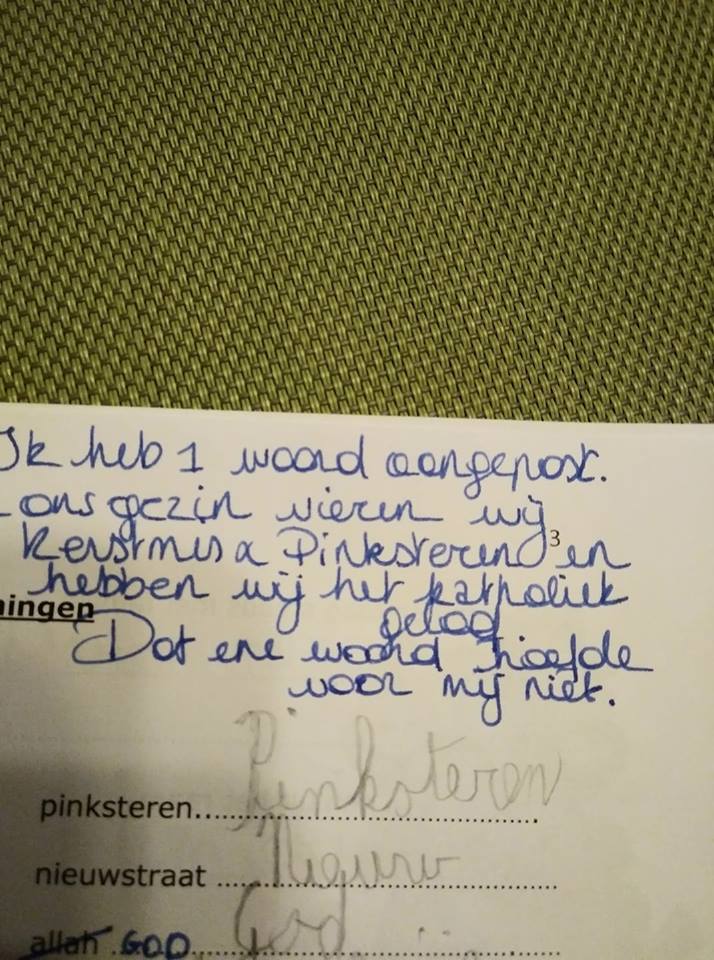 Ik heb 1 woord aangepast.
ons gezin vieren wij
Kerstmis & Pinksteren 3 en
hebben wij het katholiek
ningen geloof
Dat ene woord hoefde
voor mij niet.
pinksteren.......Pinksteren
nieuwstraat .......
allah GOD.......God